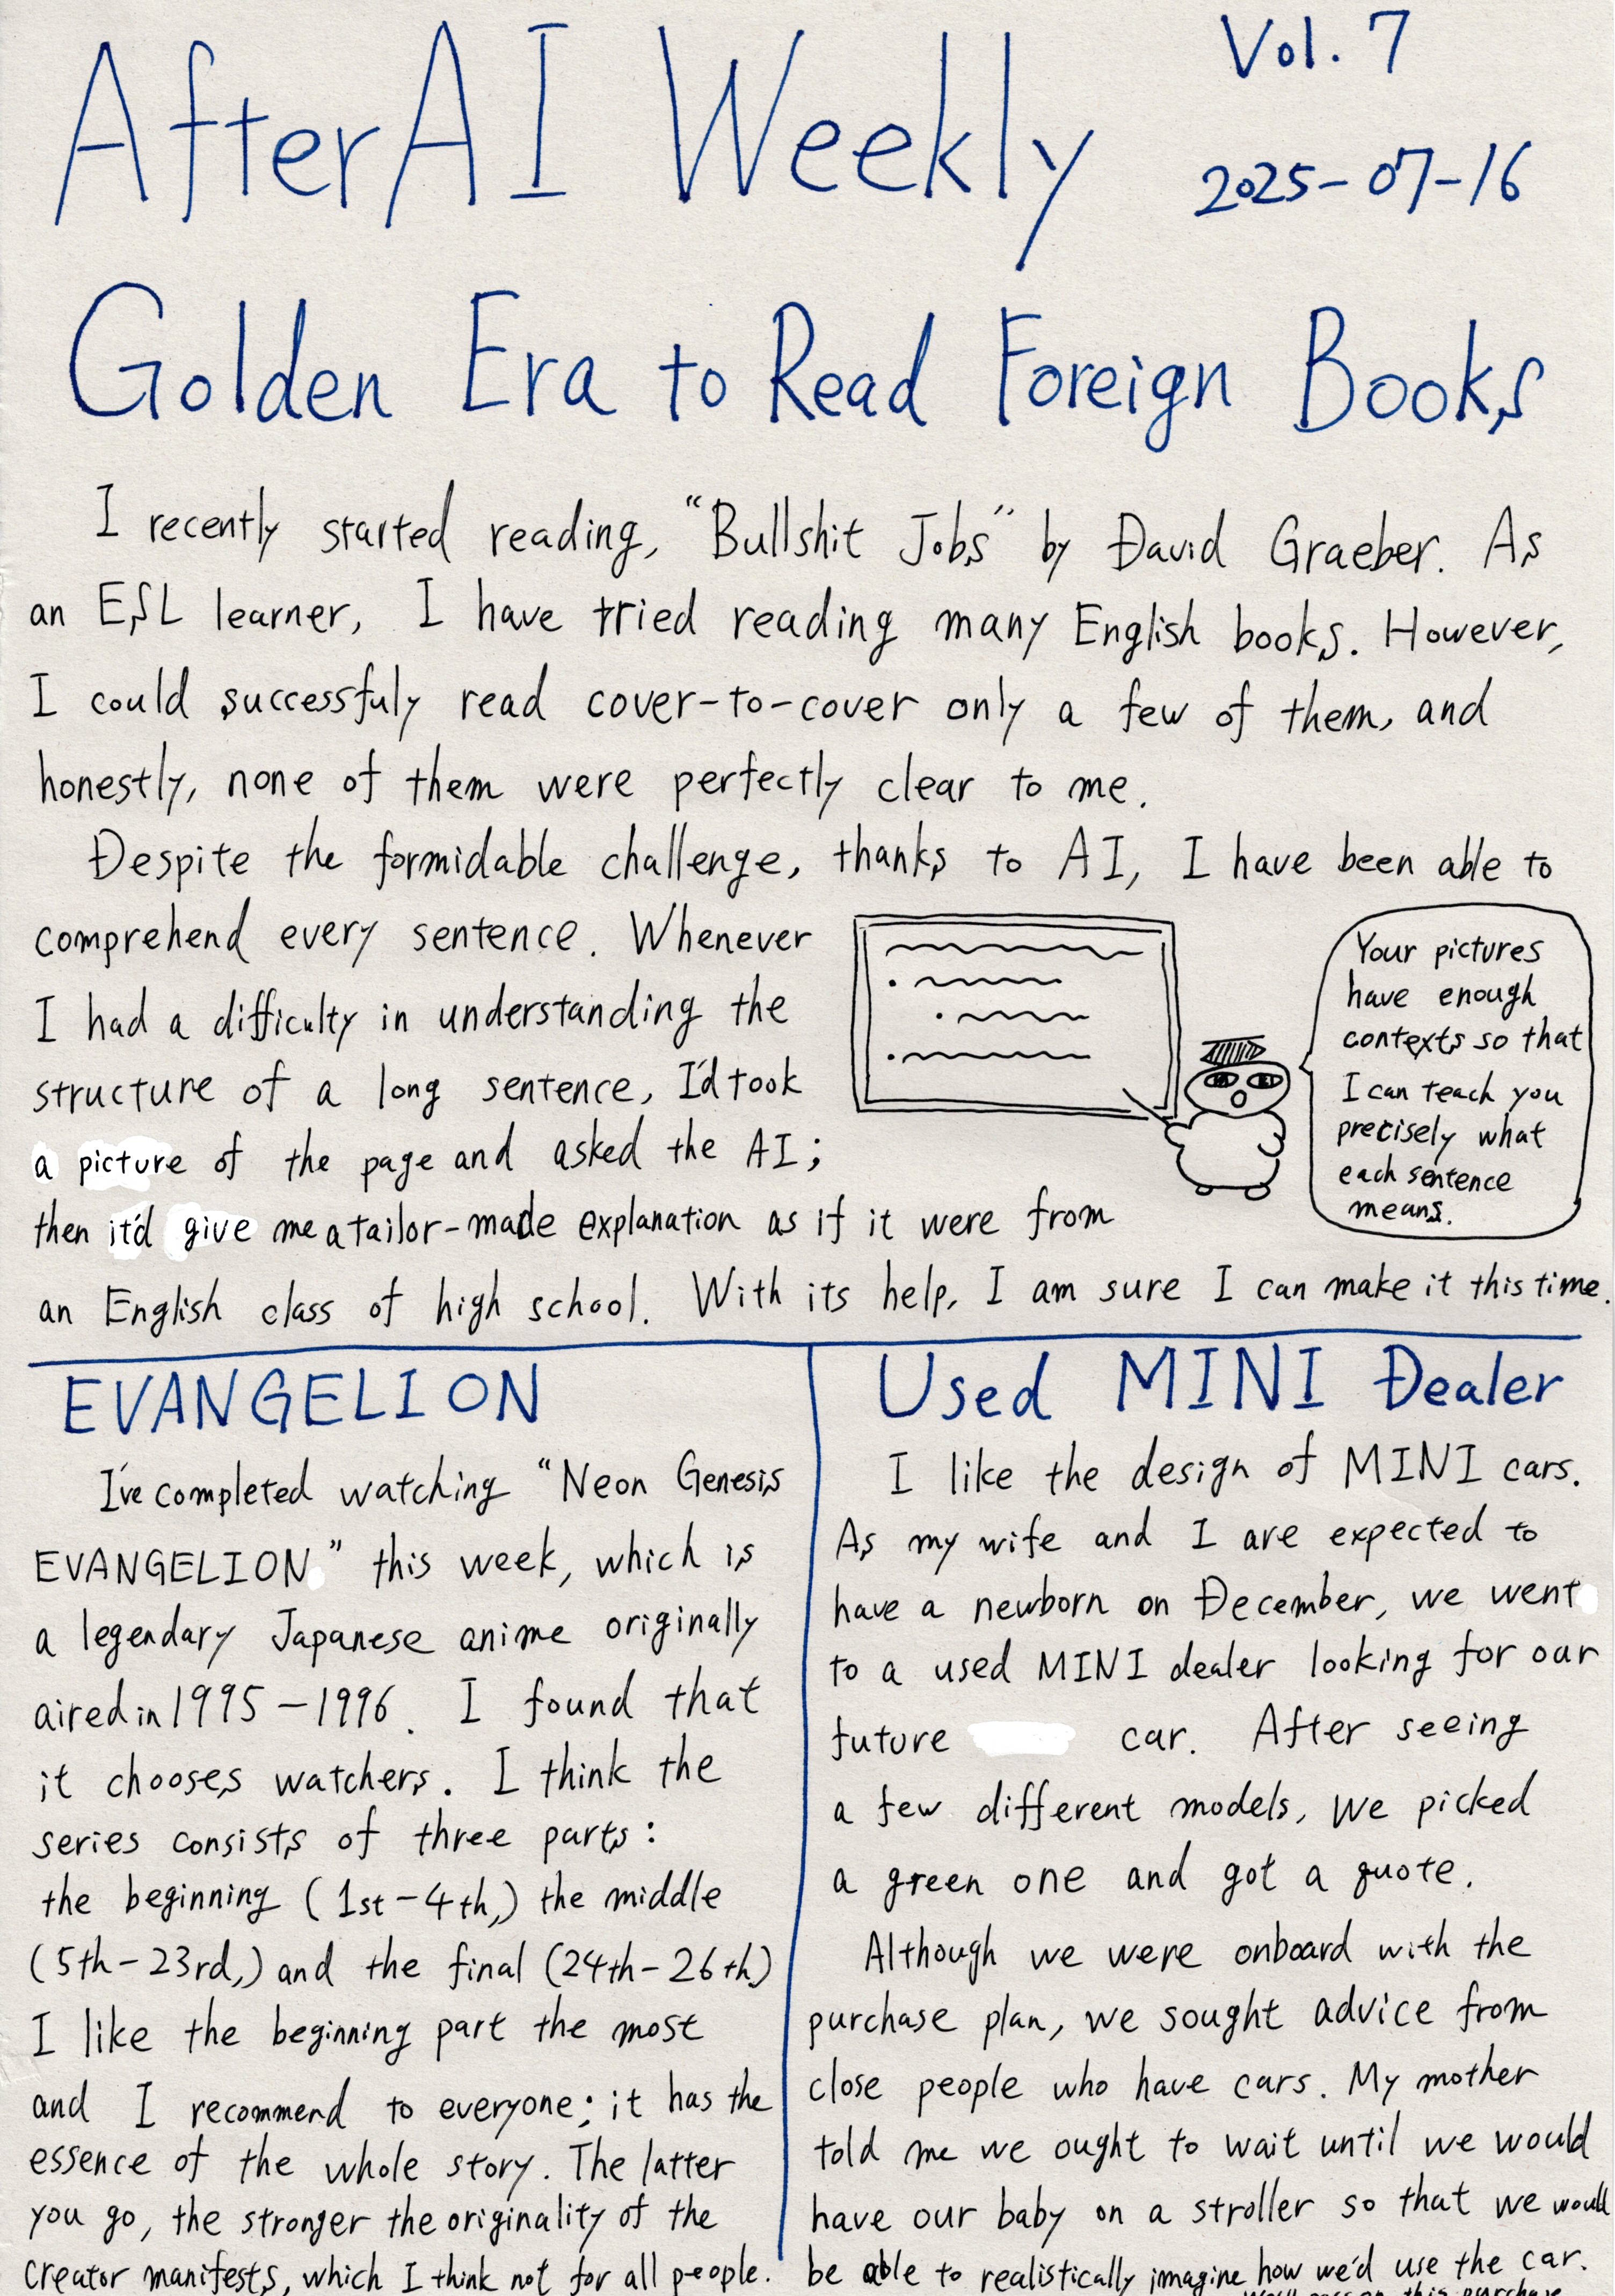 AfterAI Weekly
Vol. 7
2025-07-16
Golden Era to Read Foreign Books
I recently started reading, “Bullshit Jobs” by David Graeber. As
an ESL learner, I have tried reading many English books. However,
I could successfuly read cover-to-cover only a few of them, and
honestly, none of them were perfectly clear to me.
Despite the formidable challenge, thanks to AI, I have been able to
comprehend every sentence. Whenever
I had a difficulty in understanding the
structure of a long sentence, I'd took
a picture of the page and asked the AI;
then it'd give me a tailor-made explanation as if it were from
an English class of high school. With its help, I am sure I can make it this time.
Your pictures
have enough
contexts so that
I can teach you
precisely what
each sentence
means.
EVANGELION
I've completed watching “Neon Genesis
EVANGELION” this week, which is
a legendary Japanese anime originally
aired in 1995-1996. I found that
it chooses watchers. I think the
series consists of three parts:
the beginning (1st-4th,) the middle
(5th-23rd,) and the final (24th-26th)
I like the beginning part the most
and I recommend to everyone; it has the
essence of the whole story. The latter
you go, the stronger the originality of the
creator manifests, which I think not for all people.
Used MINI Dealer
I like the design of MINI cars.
As my wife and I are expected to
have a newborn on December, we went
to a used MINI dealer looking for our
future car. After seeing
a few different models, we picked
a green one and got a quote.
Although we were onboard with the
purchase plan, we sought advice from
close people who have cars. My mother
told me we ought to wait until we would
have our baby on a stroller so that we would
be able to realistically imagine how we'd use the car.